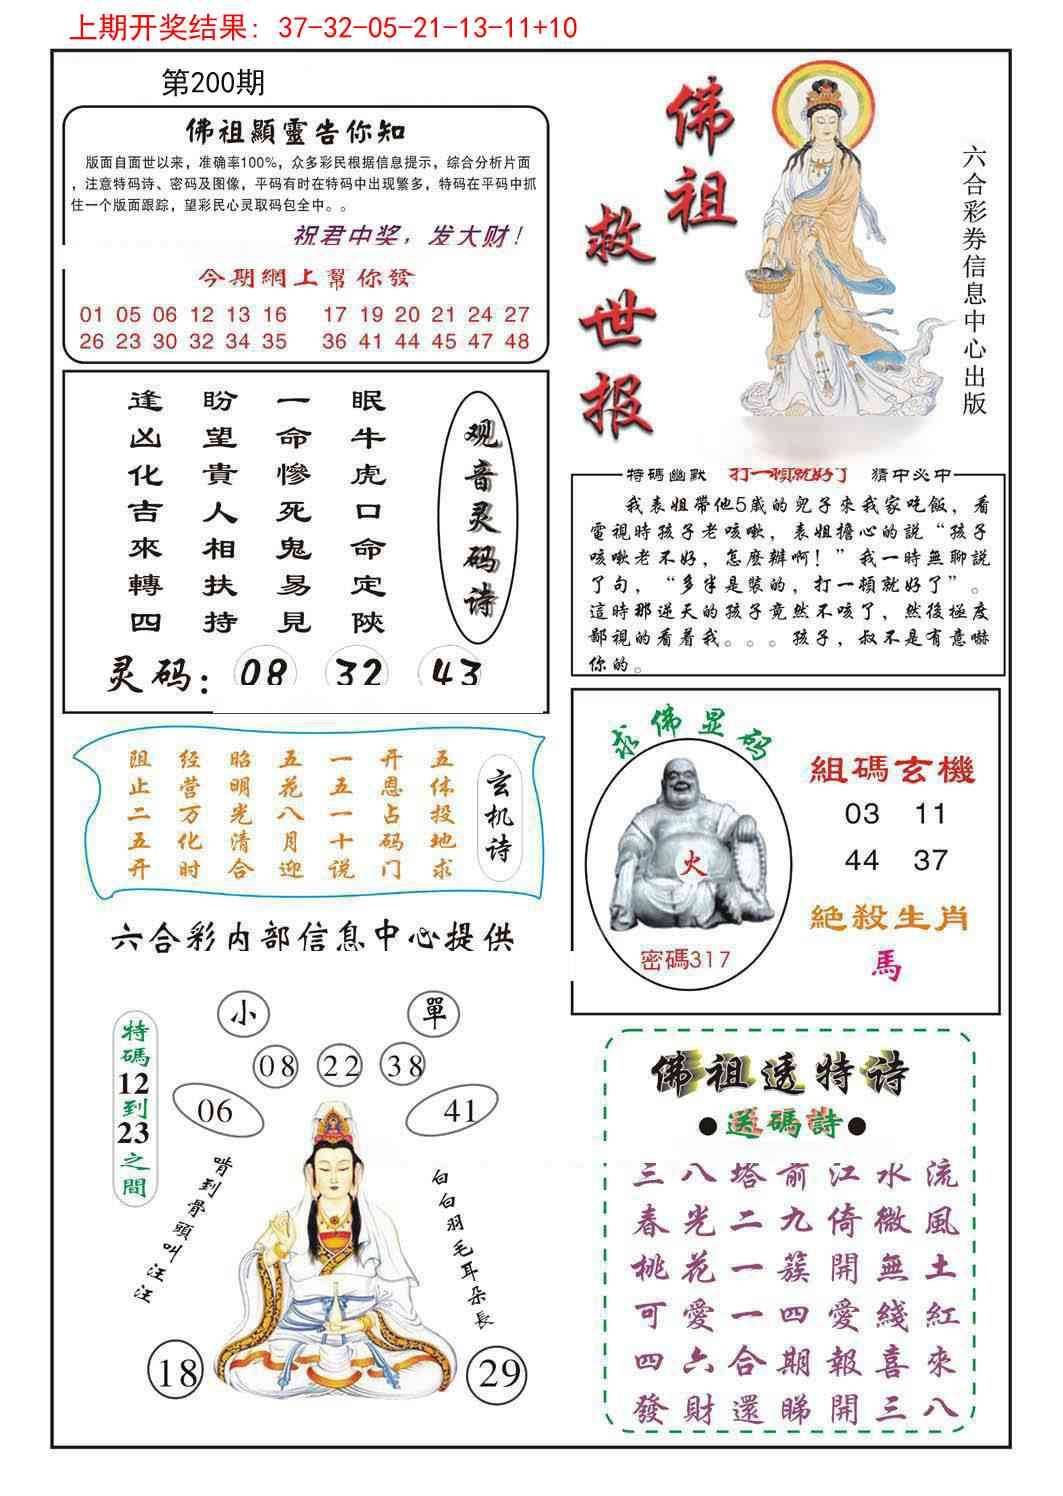 上期开奖结果: 37-32-05-21-13-11+10
第200期
佛祖顯靈告你知
版面自面世以来，准确率100%，众多彩民根据信息提示，综合分析片面
，注意特码诗、密码及图像，平码有时在特码中出现繁多，特码在平码中抓
住一个版面跟踪，望彩民心灵取码包全中。。
祝君中奖，发大财！
今期網上幫你發
01 05 06 12 13 16 17 19 20 21 24 27
26 23 30 32 34 35 36 41 44 45 47 48
佛祖
救世报
六合彩券信息中心出版
观音灵码诗
眠牛虎口命定陝
一命慘死鬼易見
盼望貴人相扶持
逢凶化吉來轉四
灵码: 08 32 43
特碼幽默 打一頓就好了 猜中必中
我表姐帶他5歲的兒子來我家吃飯，看
電視時孩子老咳嗽，表姐擔心的說“孩子
咳嗽老不好，怎麼辦啊！”我一時無聊説
了句，“多半是裝的，打一頓就好了”。
這時那逆天的孩子竟然不咳了，然後極度
鄙視的看着我。。。孩子，叔不是有意嚇
你的。
玄机诗
五体投地求
开恩占码门
一五一十说
五花八月迎
昭明光清合
经营万化时
阻止二五开
求佛显码
火
密碼317
組碼玄機
03 11
44 37
絕殺生肖
馬
六合彩内部信息中心提供
特碼12到23之間
小 單
08 22 38
06 41
啃到骨頭叫汪汪
白白羽毛耳朵長
18 29
佛祖透特诗
●送碼詩●
三八塔前江水流
春光二九倚微風
桃花一簇開無土
可愛一四愛綫紅
四六合期報喜來
發財還睇開三八